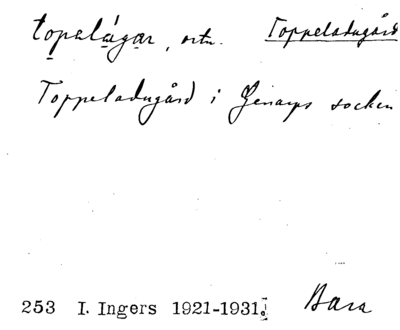 topalágar, ortn. Toppeladugård
Toppeladugård i Genarps socken
253 I. Ingers 1921-1931. Bara